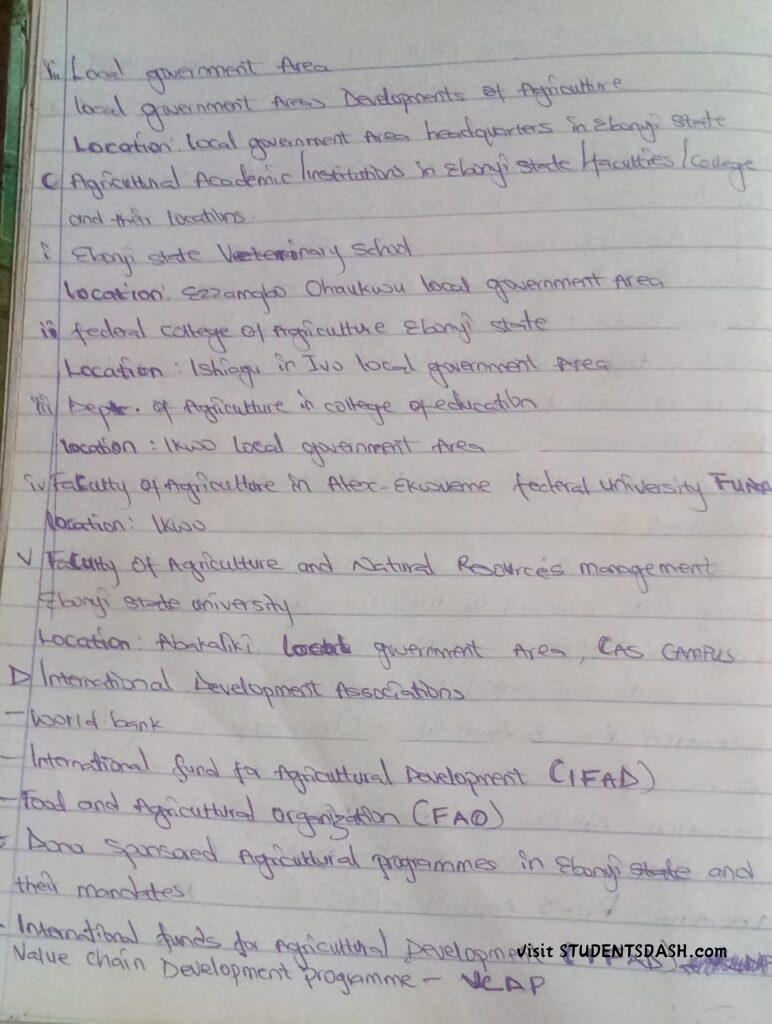 ii. Local government Area
local government Areas Developments of Agriculture
Location: local government Area headquarters in Ebonyi state
C Agricultural Academic/institutions in Ebonyi state/faculties/College
and their locations
i Ebonyi state Veterinary School
Location: Ezzamgbo Ohaukwu local government Area
ii federal college of Agriculture Ebonyi state
Location: Ishiagu in Ivo local government Area
iii Dept. of Agriculture in college of education
location: Ikwo local government Area
iv faculty of Agriculture in Alex-Ekwueme federal university
Location: Ikwo
V Faculty of Agriculture and Natural Resources management
Ebonyi state university
Location: Abakaliki local government Area, CAS CAMPUS
D International Development Associations
- World bank
- International fund for Agricultural Development (IFAD)
- Food and Agricultural Organization (FAO)
= Donor Sponsored Agricultural programmes in Ebonyi state and
their mandates
- International funds for Agricultural Development (IFAD)
Visit STUDENTSDASH.com
Value Chain Development programme - VCDP